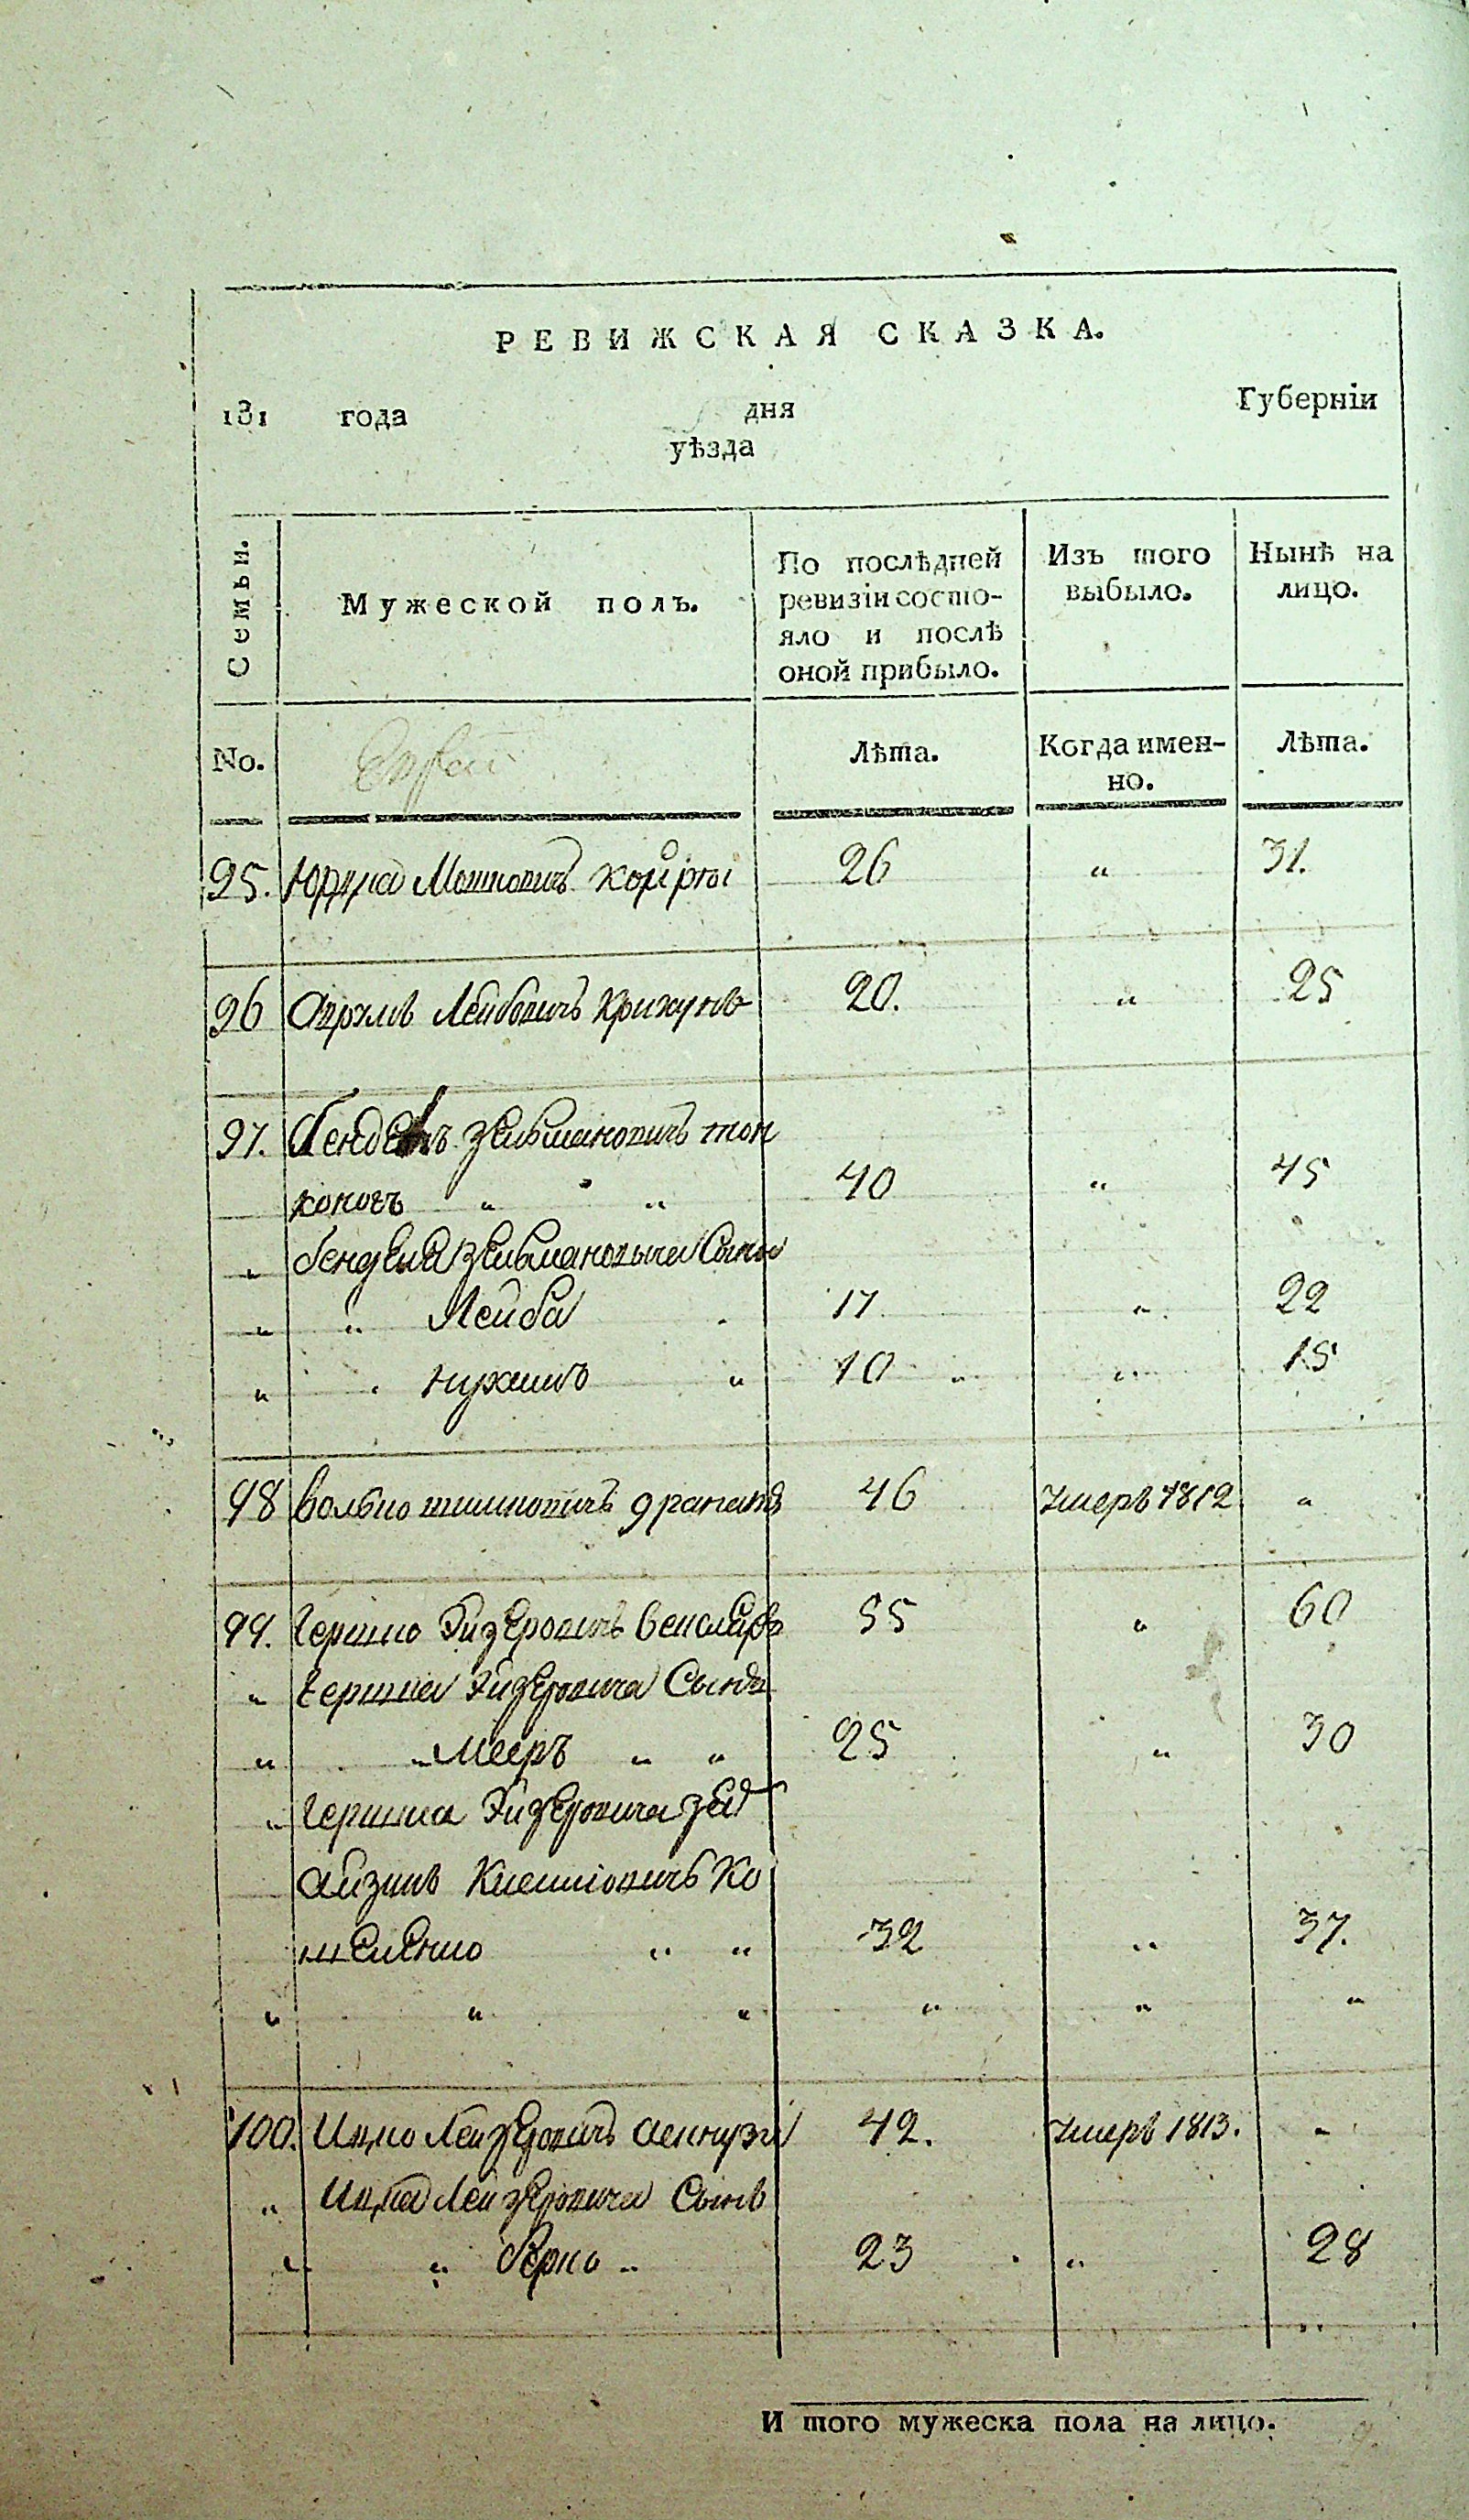 РЕВИЖСКАЯ СКАЗКА.
181 года дня Губерніи
уѣзда
Семьи. Мужеской полъ. По послѣдней ревизіи состо-яло и послѣ оной прибыло. Изъ того выбыло. Нынѣ на лицо.
No. Лѣта. Когда имен-но. Лѣта.
95. Юдка Мошковичъ 26 „ 31.
96 Аврумъ Лейбовичъ Крикунъ 20. „ 25
97. Бенделъ Зельмановичъ тон
коногъ „ „ 40 „ 45
„ бенделя Зельмановича Сыны
„ „ Лейба 17 „ 22
„ „ Нухимъ „ 10 „ „ 15
98 Волько 46 Умеръ 1812 „
99. Гершко Эйзеровичъ 55 „ 60
„ Гершка Эйзеровича Сынъ
„ „ Мееръ „ „ 25 „ 30
„ Гершка Эйзеровича
Айзикъ Ко
„ „ 32 „ 37.
„ „ „ „ „ „
100. Ицко Лейзеровичъ 42. Умеръ 1813. „
„ Ицка Лейзеровича Сынъ
„ „ Берко „ 23 „ 28
И того мужеска пола на лицо.